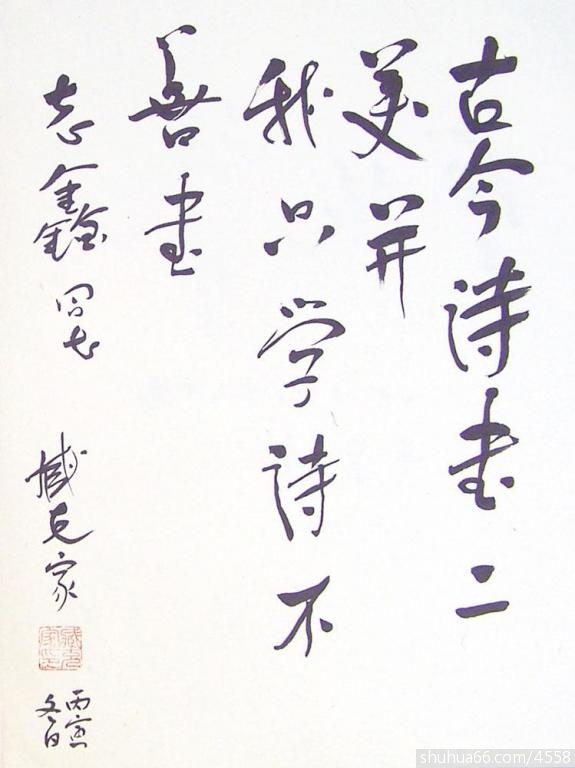 古今诗书二
美并
我只学诗不
善书
志鑫同志
臧克家
臧克家印
丙寅
冬日
shuhua66.com/4558